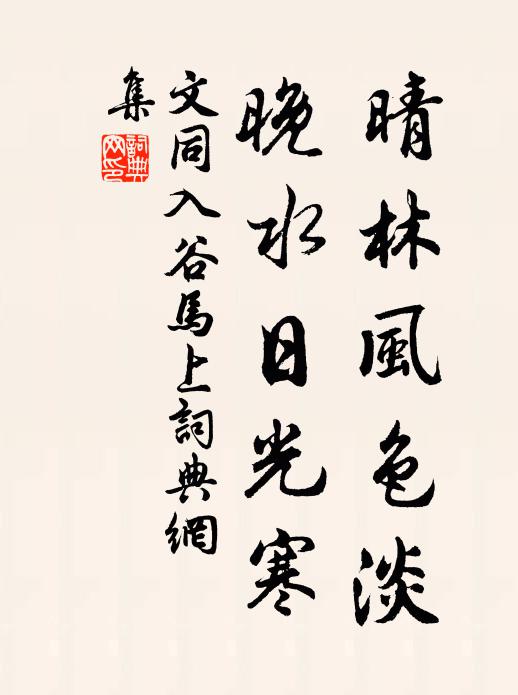 晴林風色淡
晚水日光寒
文同入谷馬上詞典網
集
詞典網印